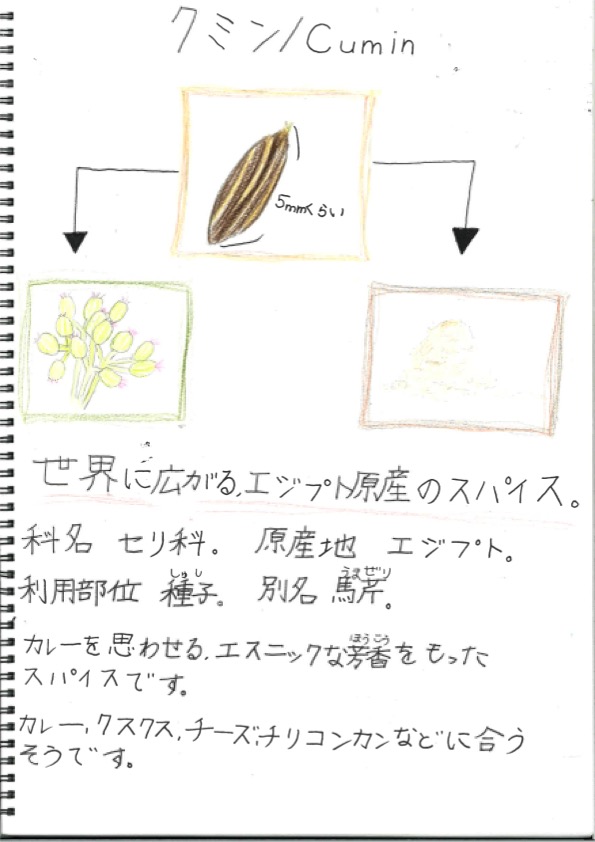 クミン/Cumin
5mmくらい
世界に広がる、エジプト原産のスパイス。
科名 セリ科。 原産地 エジプト。
しゅし うまぜり
利用部位 種子。 別名 馬芹。
ほうこう
カレーを思わせる、エスニックな芳香をもった
スパイスです。
カレー、クスクス、チーズ、チリコンカンなどに合う
そうです。